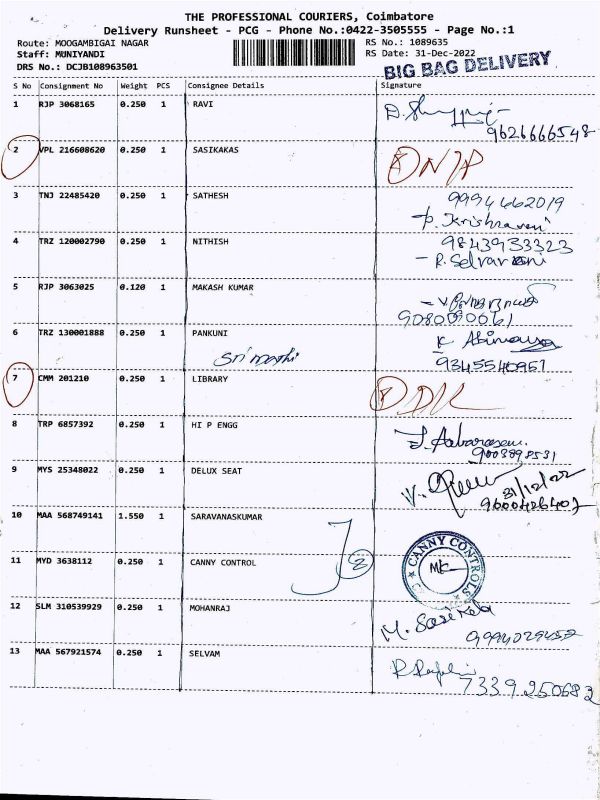 THE PROFESSIONAL COURIERS, Coimbatore
Delivery Runsheet - PCG - Phone No.:0422-3505555 - Page No.:1
Route: MOOGAMBIGAI NAGAR RS No.: 1089635
Staff: MUNIYANDI RS Date: 31-Dec-2022
DRS No.: DCJB108963501 BIG BAG DELIVERY
S No Consignment No Weight PCS Consignee Details Signature
1 RJP 3068165 0.250 1 RAVI
9626666548
2 VPL 216608620 0.250 1 SASIKAKAS
3 TNJ 22485420 0.250 1 SATHESH 9994662019
P. Krishnaveni
4 TRZ 120002790 0.250 1 NITHISH 9843933323
- R. Selvarani
5 RJP 3063025 0.120 1 MAKASH KUMAR
9080090061
6 TRZ 130001888 0.250 1 PANKUNI K Abinaya
9345540951
7 CMM 201210 0.250 1 LIBRARY DL
8 TRP 6857392 0.250 1 HI P ENGG
9003898531
9 MYS 25348022 0.250 1 DELUX SEAT
31/12/22
9600426407
10 MAA 568749141 1.550 1 SARAVANASKUMAR
8
11 MYD 3638112 0.250 1 CANNY CONTROL CANNY CONTROLS
12 SLM 310539929 0.250 1 MOHANRAJ M. Sasikala
9994029452
13 MAA 567921574 0.250 1 SELVAM
7339250682